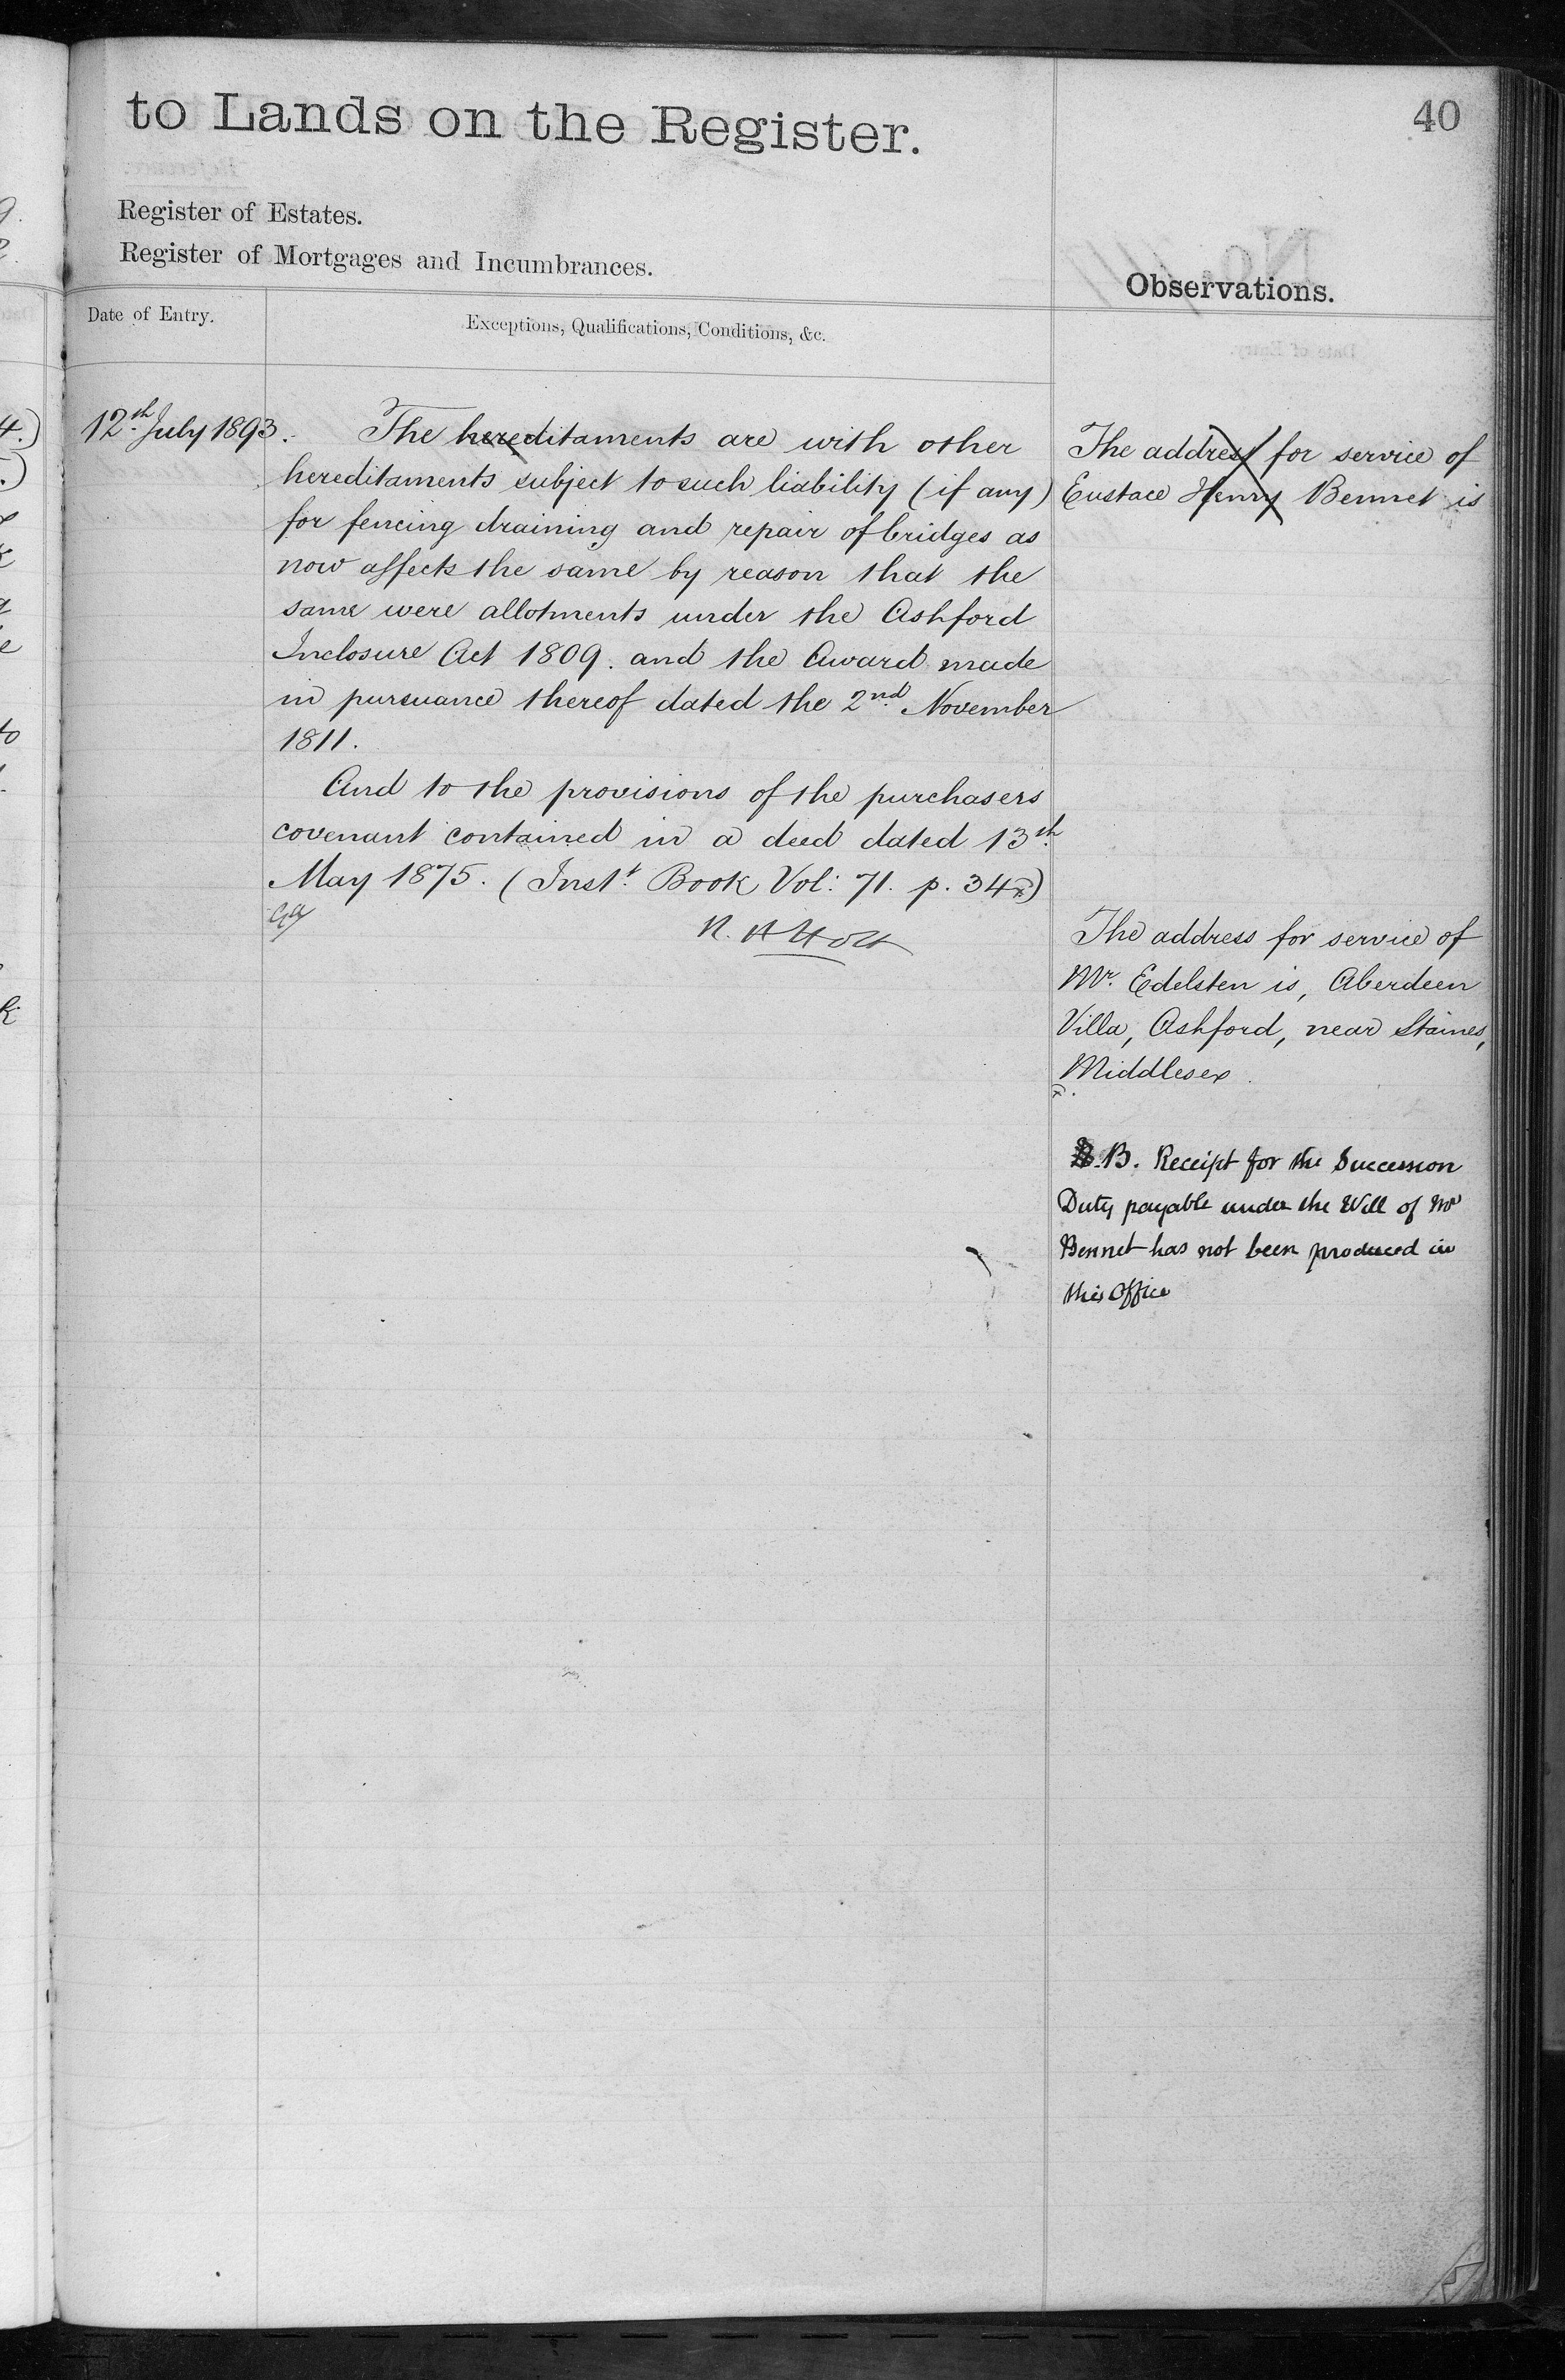 to Lands on the Register.
40
Register of Estates.
Register of Mortgages and Incumbrances.
Observations.
Date of Entry.
Exceptions, Qualifications, Conditions, &c.
12th July 1893.
The hereditaments are with other
hereditaments subject to such liability (if any)
for fencing draining and repair of bridges as
now affects the same by reason that the
same were allotments under the Ashford
Inclosure Act 1809. and the Award made
in pursuance thereof dated the 2nd November
1811.
And to the provisions of the purchasers
covenant contained in a deed dated 13th
May 1875. (Inst. Book Vol: 71. p. 34)
The address for service of
Eustace Henry Bennet is
The address for service of
Mr. Edelsten is, Aberdeen
Villa, Ashford, near Staines,
Middlesex.
B. Receipt for the Succession
Duty payable under the Will of Mr
Bennet has not been produced in
this Office